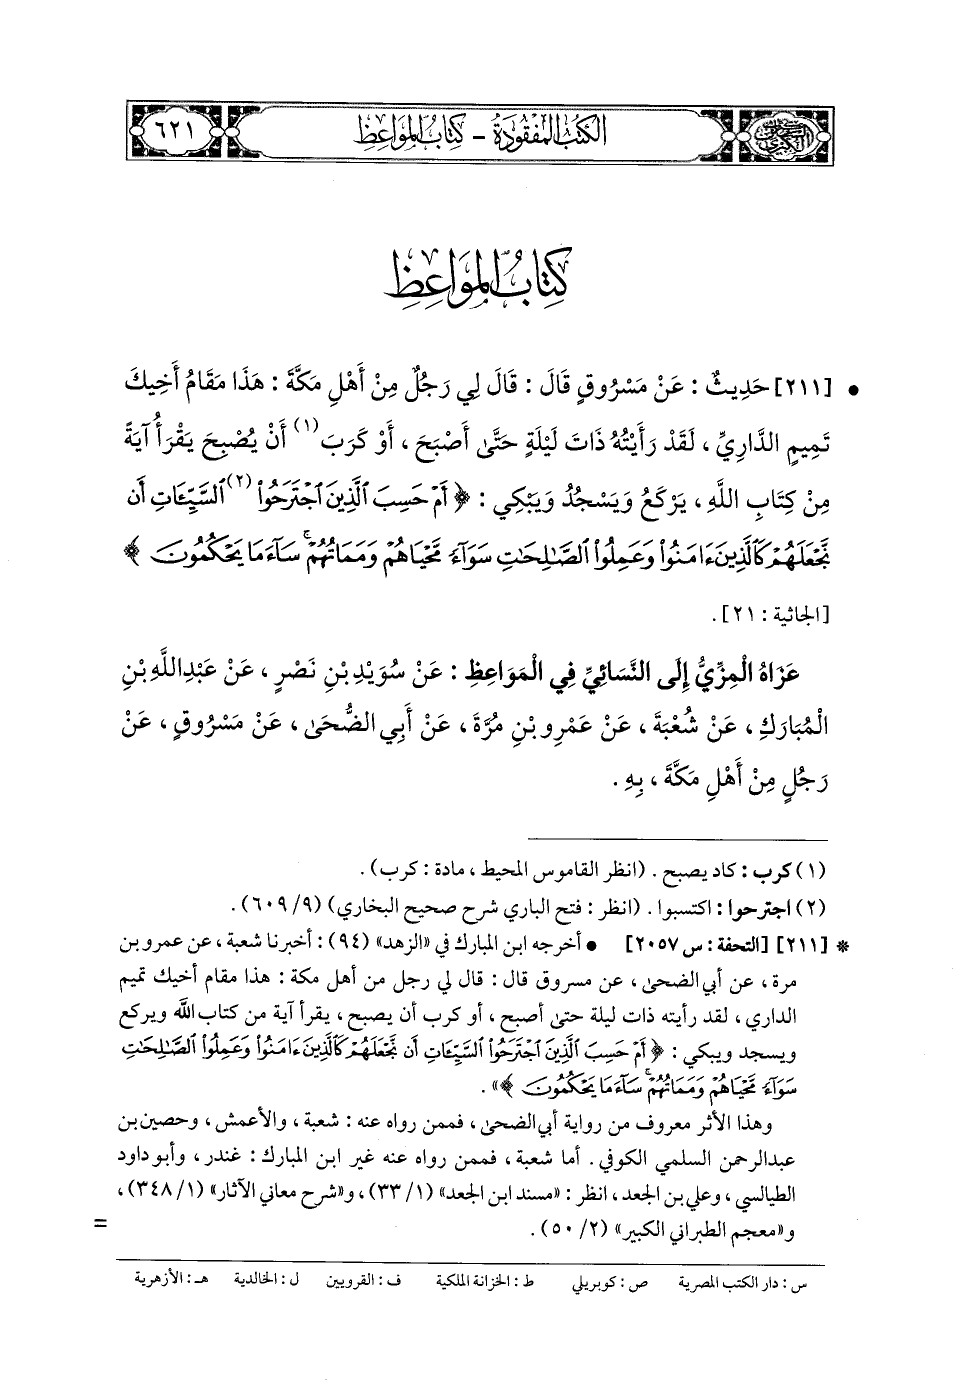 الكتب المفقودة - كتاب المواعظ
٦٢١
كِتَابُ المَوَاعِظِ
• [٢١١] حَدِيثٌ : عَنْ مَسْرُوقٍ قَالَ : قَالَ لِي رَجُلٌ مِنْ أَهْلِ مَكَّةَ : هَذَا مَقَامُ أَخِيكَ
تَمِيمٍ الدَّارِيِّ ، لَقَدْ رَأَيْتُهُ ذَاتَ لَيْلَةٍ حَتَّى أَصْبَحَ ، أَوْ كَرَبَ (١) أَنْ يُصْبِحَ يَقْرَأُ آيَةً
مِنْ كِتَابِ اللَّهِ ، يَرْكَعُ وَيَسْجُدُ وَيَبْكِي : ﴿ أَمْ حَسِبَ ٱلَّذِينَ ٱجْتَرَحُوا۟ (٢) ٱلسَّيِّـَٔاتِ أَن
نَّجْعَلَهُمْ كَٱلَّذِينَ ءَامَنُوا۟ وَعَمِلُوا۟ ٱلصَّـٰلِحَـٰتِ سَوَآءً مَّحْيَاهُمْ وَمَمَاتُهُمْ ۚ سَآءَ مَا يَحْكُمُونَ ﴾
[الجاثية : ٢١] .
عَزَاهُ الْمِزِّيُّ إِلَى النَّسَائِيِّ فِي الْمَوَاعِظِ : عَنْ سُوَيْدِ بْنِ نَصْرٍ ، عَنْ عَبْدِ اللَّهِ بْنِ
الْمُبَارَكِ ، عَنْ شُعْبَةَ ، عَنْ عَمْرِو بْنِ مُرَّةَ ، عَنْ أَبِي الضُّحَى ، عَنْ مَسْرُوقٍ ، عَنْ
رَجُلٍ مِنْ أَهْلِ مَكَّةَ ، بِهِ .
(١) كرب : كاد يصبح . (انظر القاموس المحيط ، مادة : كرب) .
(٢) اجترحوا : اكتسبوا . (انظر : فتح الباري شرح صحيح البخاري) (٩/ ٦٠٩) .
* [٢١١] [التحفة : س ٢٠٥٧] • أخرجه ابن المبارك في «الزهد» (٩٤) : أخبرنا شعبة ، عن عمرو بن
مرة ، عن أبي الضحى ، عن مسروق قال : قال لي رجل من أهل مكة : هذا مقام أخيك تميم
الداري ، لقد رأيته ذات ليلة حتى أصبح ، أو كرب أن يصبح ، يقرأ آية من كتاب الله ويركع
ويسجد ويبكي : ﴿ أَمْ حَسِبَ ٱلَّذِينَ ٱجْتَرَحُوا۟ ٱلسَّيِّـَٔاتِ أَن نَّجْعَلَهُمْ كَٱلَّذِينَ ءَامَنُوا۟ وَعَمِلُوا۟ ٱلصَّـٰلِحَـٰتِ
سَوَآءً مَّحْيَاهُمْ وَمَمَاتُهُمْ ۚ سَآءَ مَا يَحْكُمُونَ ﴾» .
وهذا الأثر معروف من رواية أبي الضحى ، فممن رواه عنه : شعبة ، والأعمش ، وحصين بن
عبدالرحمن السلمي الكوفي . أما شعبة ، فممن رواه عنه غير ابن المبارك : غندر ، وأبو داود
الطيالسي ، وعلي بن الجعد ، انظر : «مسند ابن الجعد» (١/ ٣٣) ، و«شرح معاني الآثار» (١/ ٣٤٨) ،
و«معجم الطبراني الكبير» (٢/ ٥٠) .
=
س : دار الكتب المصرية ص : كوبريلي ط : الخزانة الملكية ف : القرويين ل : الخالدية هـ : الأزهرية